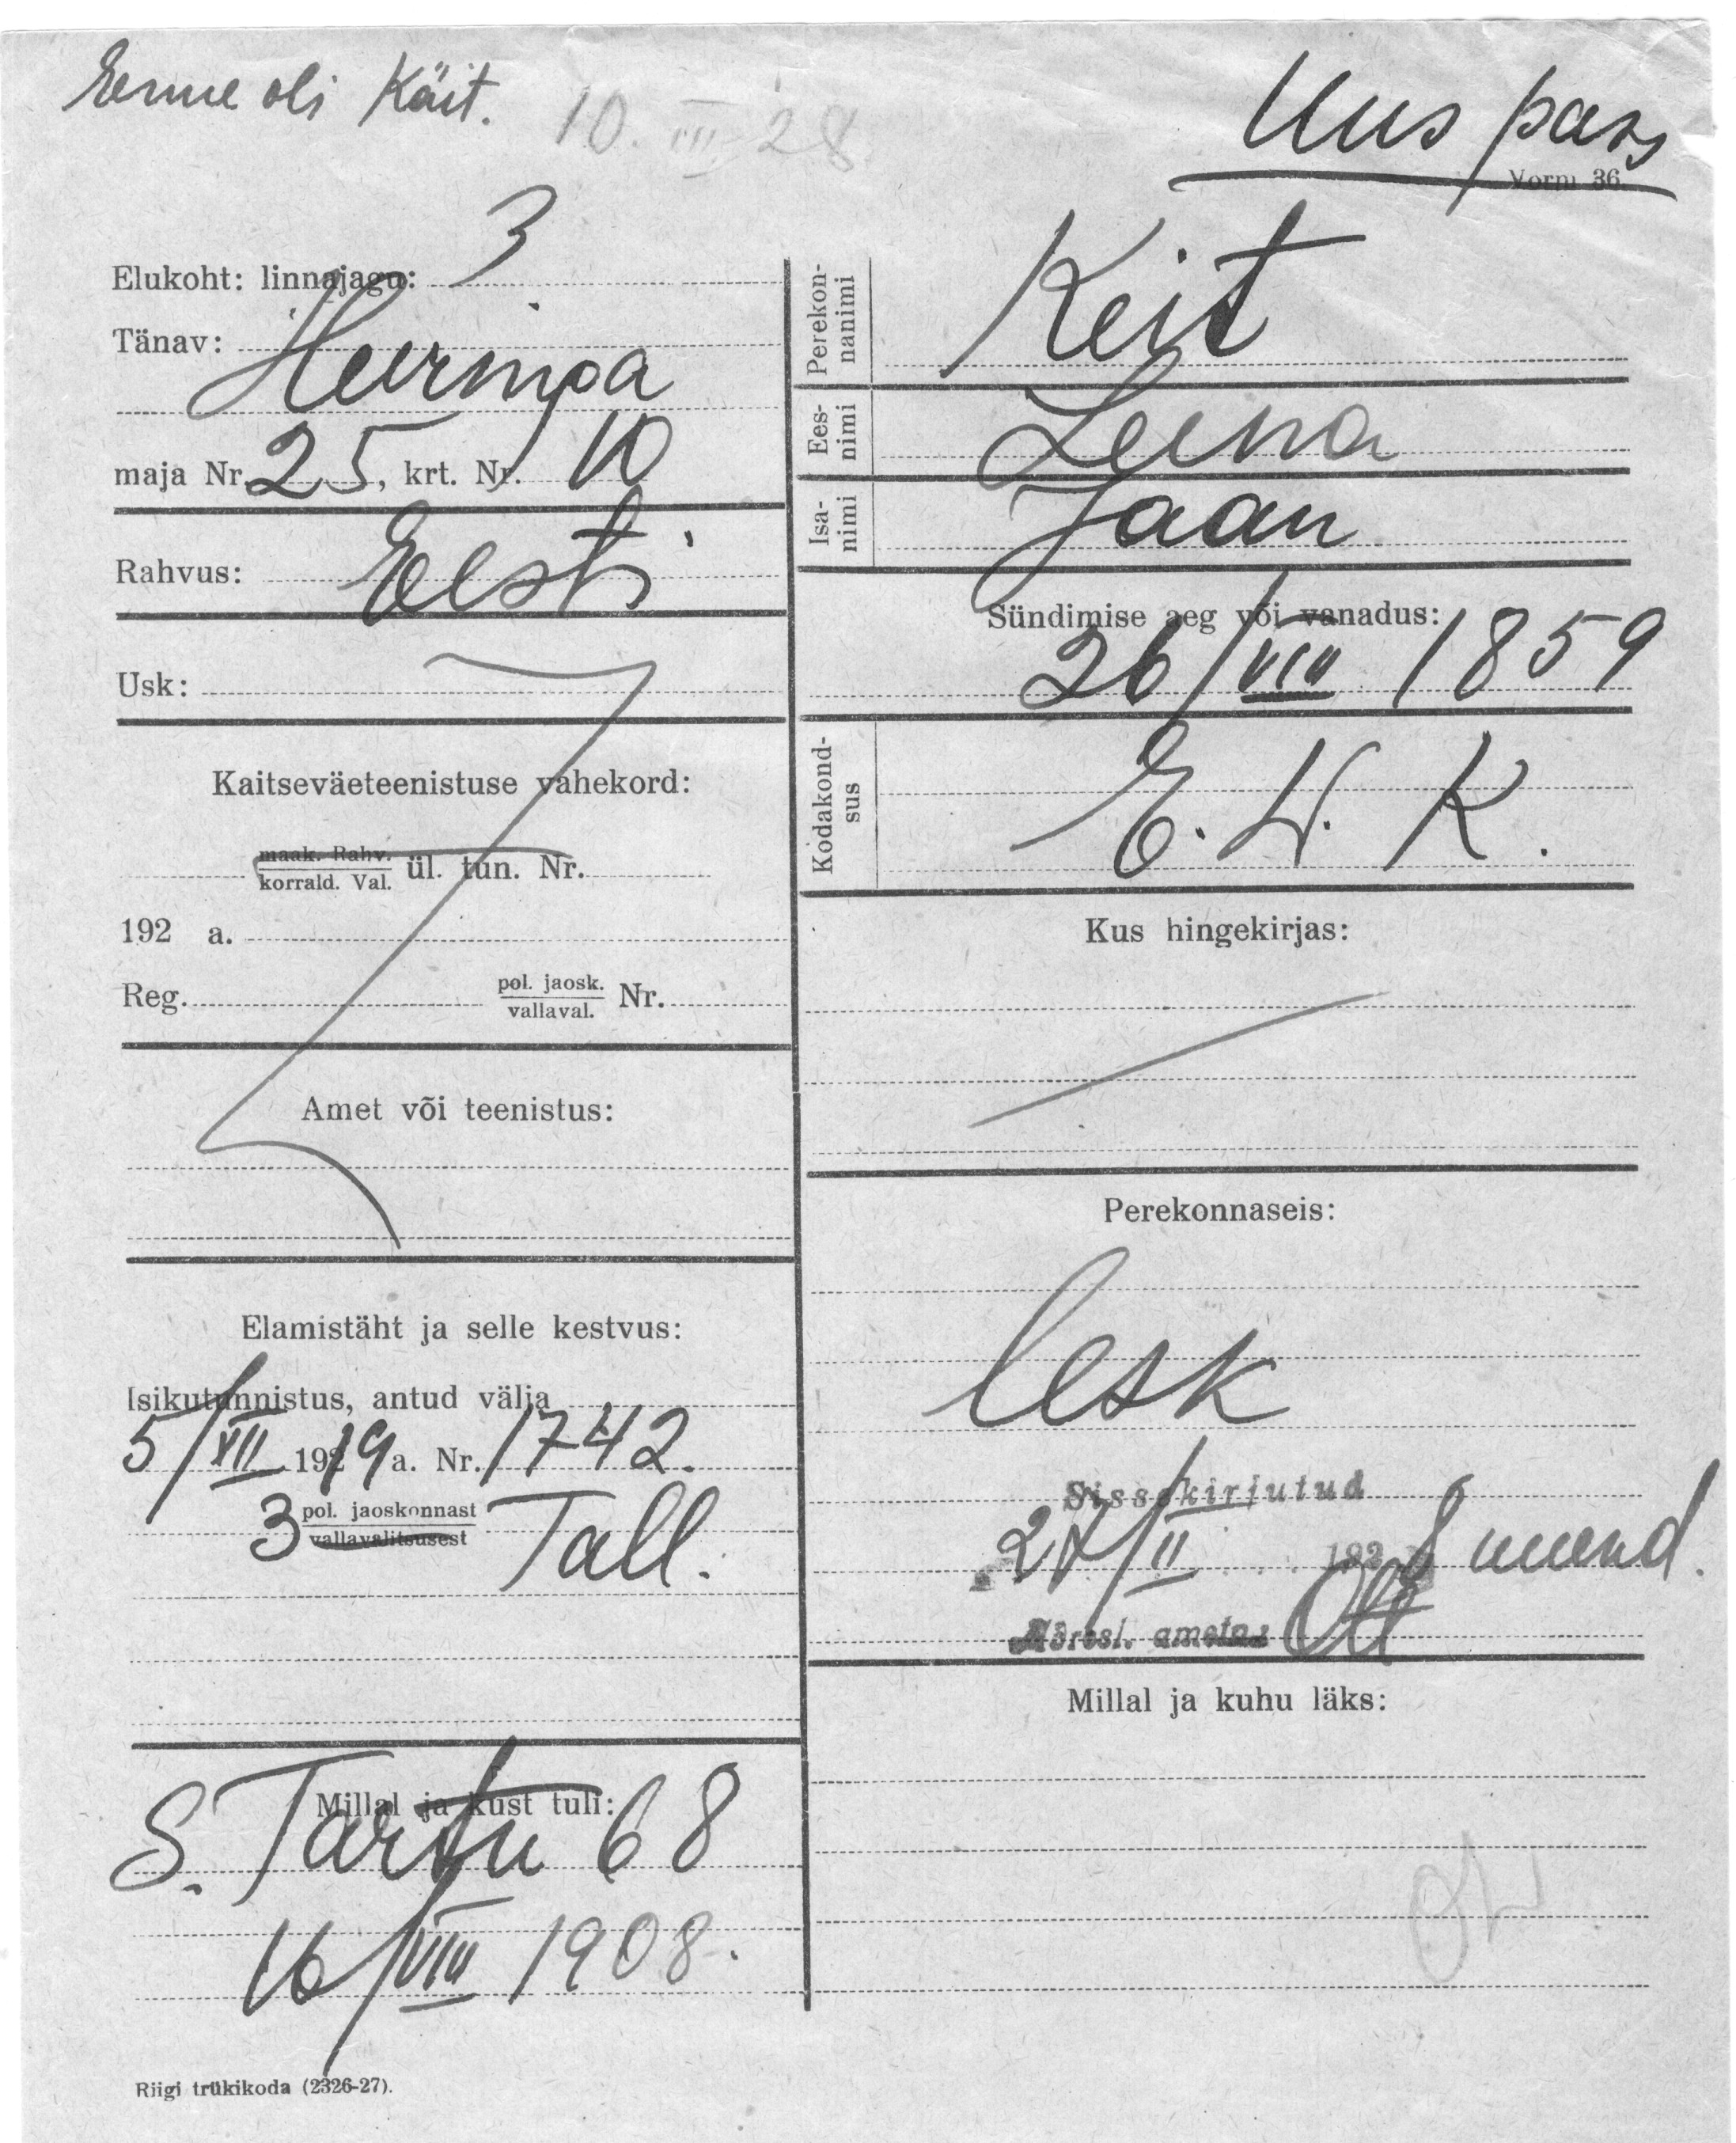 Enne oli Käit. 10. III 28
Uus pass
Vorm 36.
Elukoht: linnajagu: 3
Tänav:
Heeringa
maja Nr. 25, krt. Nr. 10
Rahvus: Eesti
Usk:
Kaitseväeteenistuse vahekord:
maak. Rahv.
korrald. Val. ül. tun. Nr.
192 a.
Reg. pol. jaosk. Nr.
vallaval.
Amet või teenistus:
Elamistäht ja selle kestvus:
Isikutunnistus, antud välja
5/XII 1919 a. Nr. 1742.
3 pol. jaoskonnast Tall.
vallavalitsusest
Millal ja kust tuli:
S. Tartu 68
16/VIII 1908.
Riigi trükikoda (2326-27).
Perekon-
nanimi
Keit
Ees-
nimi
Leena
Isa-
nimi
Jaan
Sündimise aeg või vanadus:
26/VIII 1859
Kodakond-
sus
E. W. K.
Kus hingekirjas:
Perekonnaseis:
lesk
Sissekirjutud
/II 1928
Adresl. ametn. Ott
Millal ja kuhu läks: